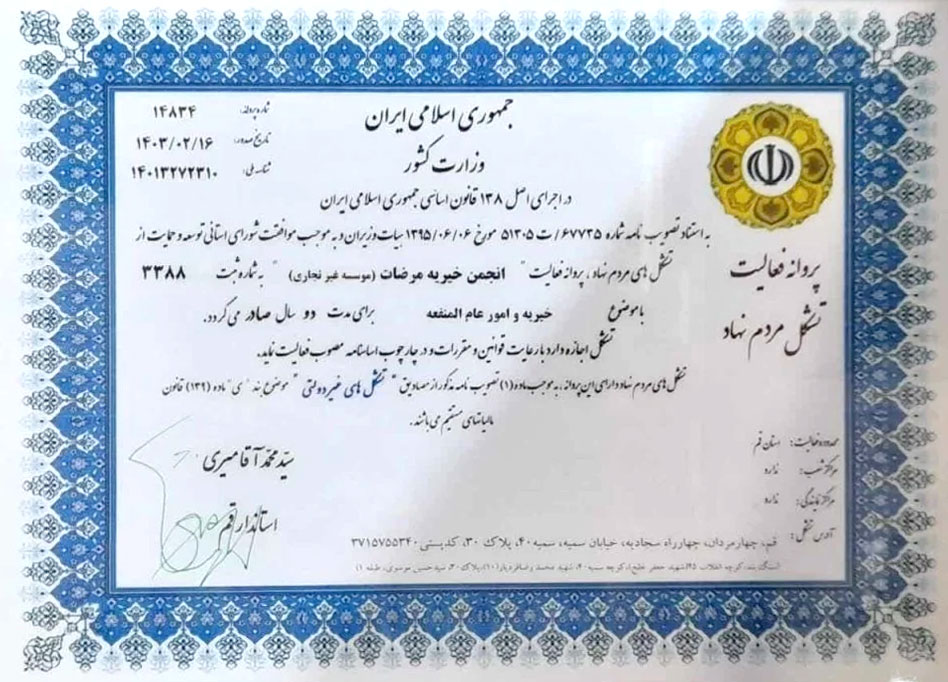 جمهوری اسلامی ایران
وزارت کشور
شماره پروانه: ۱۴۸۳۴
تاریخ صدور: ۱۴۰۳/۰۲/۱۶
شناسه ملی: ۱۴۰۱۳۲۷۲۳۱۰
در اجرای اصل ۱۳۸ قانون اساسی جمهوری اسلامی ایران
به استناد تصویب نامه شماره ۶۷۷۳۵/ت ۵۱۳۰۵ مورخ ۱۳۹۵/۰۶/۰۶ هیات وزیران و به موجب موافقت شورای استانی توسعه و حمایت از
تشکل های مردم نهاد، پروانه فعالیت " انجمن خیریه مرضات (موسسه غیر تجاری) " به شماره ثبت ۳۳۸۸
با موضوع خیریه و امور عام المنفعه برای مدت دو سال صادر می گردد.
تشکل اجازه دارد با رعایت قوانین و مقررات و در چارچوب اساسنامه مصوب فعالیت نماید.
تشکل های مردم نهاد دارای این پروانه، به موجب ماده (۱) تصویب نامه مذکور از مصادیق "تشکل های غیر دولتی" موضوع بند "ی" ماده (۱۳۹) قانون
مالیاتهای مستقیم می باشند.
پروانه فعالیت
تشکل مردم نهاد
محدوده فعالیت: استان قم
مراکز شعب: ندارد
مراکز نمایندگی: ندارد
آدرس تشکل: قم، چهارمردان، چهارراه سجادیه، خیابان سمیه، سمیه ۴۰، پلاک ۳۰، کدپستی ۳۷۱۵۷۵۵۳۴۰
سیّد محمّد آقامیری
استاندار قم